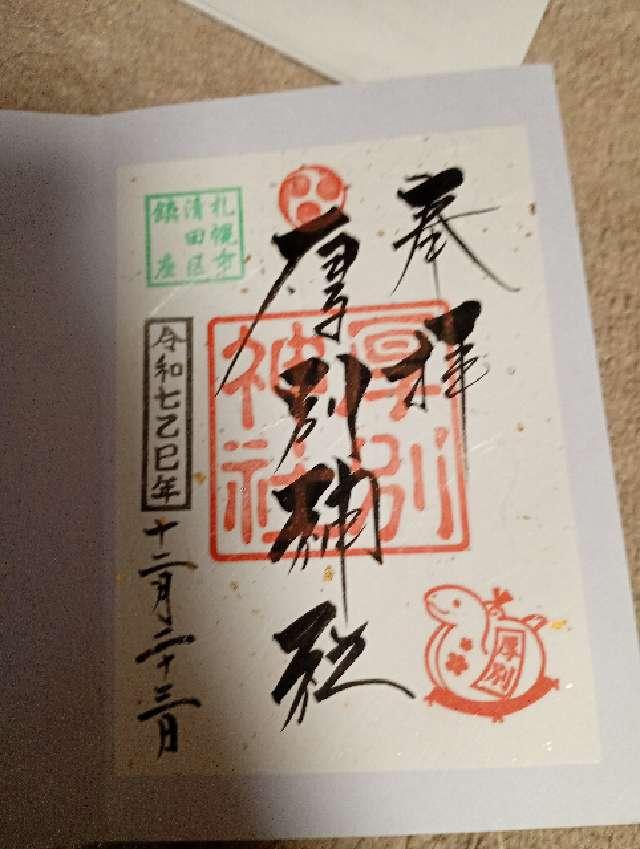 奉拝
厚別神社
厚別
神社
札幌市
清田区
鎮座
令和七乙巳年
十二月二十三日
厚別